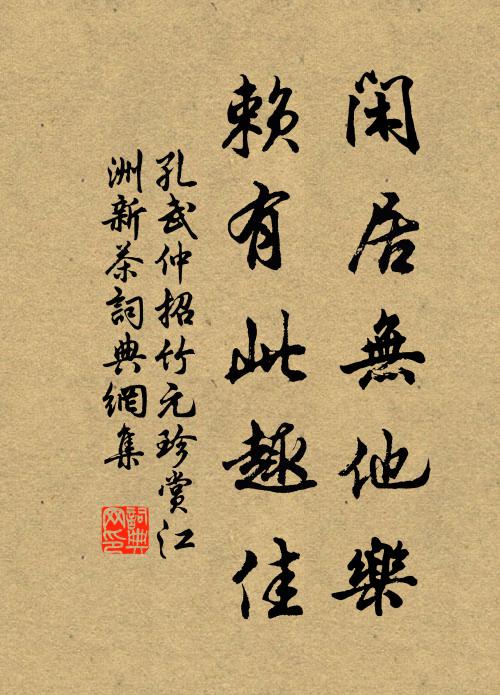 閑居無他樂
賴有此趣佳
孔武仲招竹元珍賞江
洲新茶詞典網集
詞典
网印